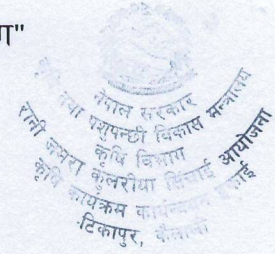 ा"
नेपाल सरकार
कृषि तथा पशुपन्छी विकास मन्त्रालय
कृषि विभाग
रानी जमरा कुलरीया सिंचाई आयोजना
कृषि कार्यक्रम कार्यान्वयन इकाई
टिकापुर, कैलाली